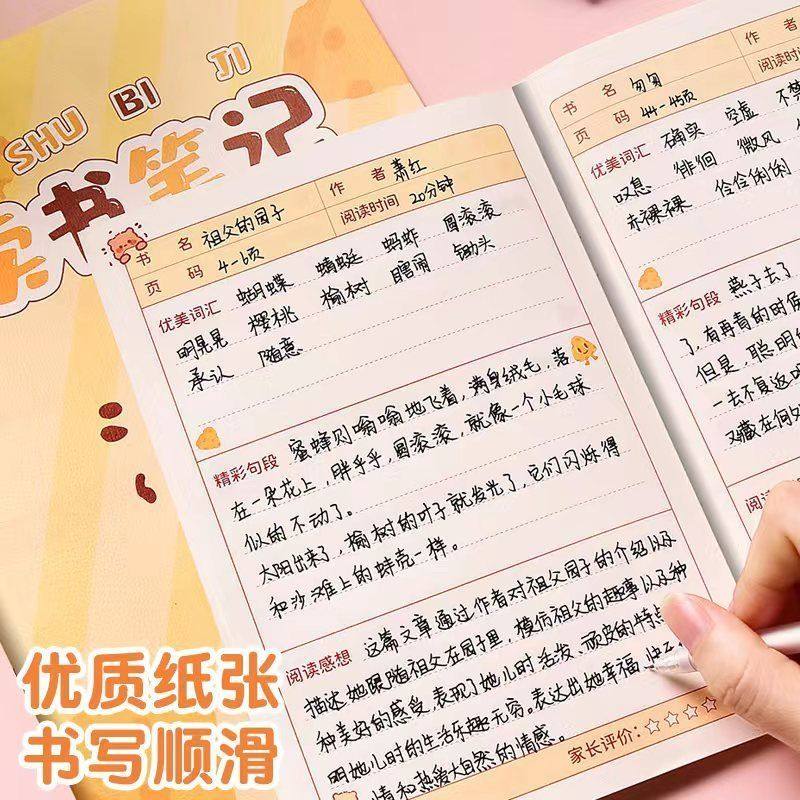 SHU BI JI
书笔记
书 名 祖父的园子 作 者 萧红
页 码 4-6页 阅读时间 20分钟
优美词汇 蝴蝶 蜻蜓 蚂蚱 圆滚滚
明晃晃 樱桃 榆树 瞎闹 锄头
承认 随意
精彩句段 蜜蜂则嗡嗡地飞着，满身绒毛，落
在一朵花上，胖乎乎，圆滚滚，就像一个小毛球
似的不动了。
太阳出来了，榆树的叶子就发光了，它们闪烁得
和沙滩上的蚌壳一样。
阅读感想 这篇文章通过作者对祖父园子的介绍以及
描述她跟随祖父在园子里，模仿祖父的趣事以及种
种美好的感受，表现了她儿时活发、顽皮的特点
明她儿时的生活乐趣无穷。表达出她幸福、
情和热爱大自然的情感。
家长评价：
书 名 匆匆 作
页 码 44-45页 阅读时
优美词汇 确实 空虚 不禁
叹息 徘徊 微风
赤裸裸 伶伶俐俐
精彩句段 燕子去了
了，有再青的时候
但是，聪明的
一去不复返呢
又藏在何处
阅读
优质纸张
书写顺滑